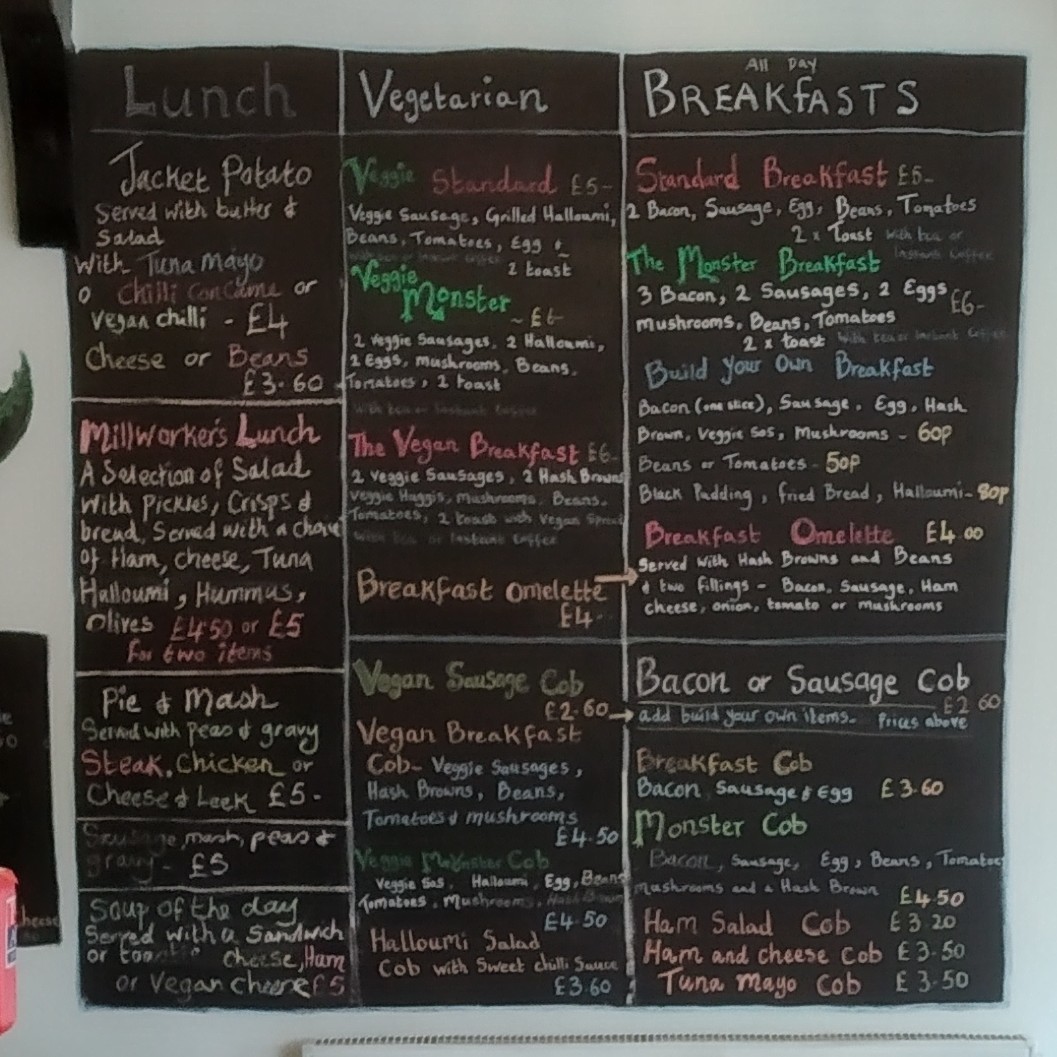 Lunch
Jacket Potato
Served with butter &
Salad
With Tuna Mayo
o Chilli Con Carne or
Vegan chilli - £4
Cheese or Beans
£3.60
Millworker's Lunch
A Selection of Salad
With Pickles, Crisps &
bread. Served with a choice
of Ham, cheese, Tuna
Halloumi, Hummus,
Olives £4.50 or £5
For two items
Pie & Mash
Served with peas & gravy
Steak, Chicken or
Cheese & Leek £5-
Sausage, mash, peas &
gravy - £5
Soup of the day
Served with a Sandwich
or cheese, Ham
or Vegan cheese £5
Vegetarian
Veggie Standard £5-
Veggie Sausage, Grilled Halloumi,
Beans, Tomatoes, Egg &
2 toast
Veggie
Monster
- £6-
2 Veggie Sausages, 2 Halloumi,
2 Eggs, mushrooms, Beans,
Tomatoes, 2 toast
With tea or Instant Coffee
The Vegan Breakfast £6-
2 Veggie Sausages, 2 Hash Browns
Veggie Haggis, mushrooms, Beans,
Tomatoes, 2 toast with Vegan Spread
With tea or Instant Coffee
Breakfast Omelette
£4-
Vegan Sausage Cob
£2.60
Vegan Breakfast
Cob- Veggie Sausages,
Hash Browns, Beans,
Tomatoes & mushrooms
£4.50
Veggie Cob
Veggie Sos, Halloumi, Egg, Beans
Tomatoes, Mushrooms, Hash Brown
£4.50
Halloumi Salad
Cob with Sweet chilli Sauce
£3.60
All Day
BREAKfASTS
Standard Breakfast £5-
2 Bacon, Sausage, Egg, Beans, Tomatoes
2 x Toast with tea or
Instant Coffee
The Monster Breakfast
3 Bacon, 2 Sausages, 2 Eggs £6-
mushrooms, Beans, Tomatoes
2 x toast With tea or Instant Coffee
Build Your Own Breakfast
Bacon (one slice), Sausage, Egg, Hash
Brown, Veggie Sos, Mushrooms - 60p
Beans or Tomatoes - 50p
Black Pudding, fried Bread, Halloumi- 80p
Breakfast Omelette £4.00
Served with Hash Browns and Beans
& two fillings - Bacon, Sausage, Ham
cheese, onion, tomato or mushrooms
Bacon or Sausage Cob
£2.60
add build your own items. Prices above
Breakfast Cob
Bacon, Sausage & Egg £3.60
Monster Cob
Bacon, Sausage, Egg, Beans, Tomatoes
Mushrooms and a Hash Brown
£4.50
Ham Salad Cob £3.20
Ham and cheese Cob £3.50
Tuna Mayo Cob £3.50